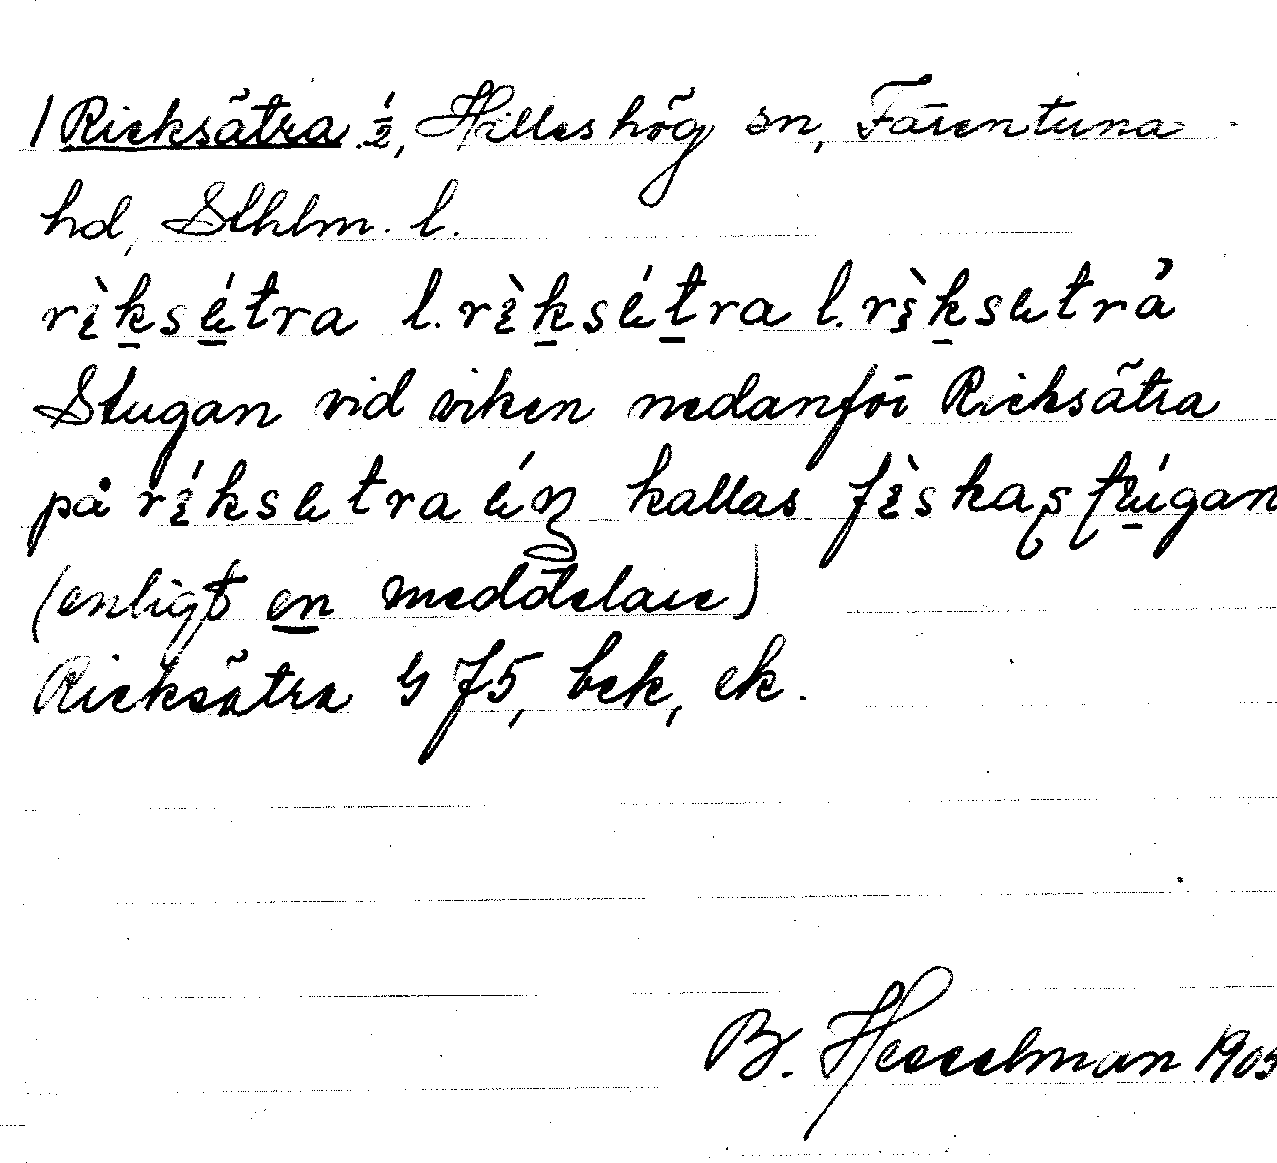 1 Ricksätra ½, Hilleshög sn, Färentuna
hd, Sthlm. l.
rìksétra l. rìksétra l. rìksetrà
Stugan vid viken nedanför Ricksätra
på ríksetra kallas fìskastúgan
(enligt en meddelare)
Ricksätra G J5, bek, ek.
B. Hesselman 1905